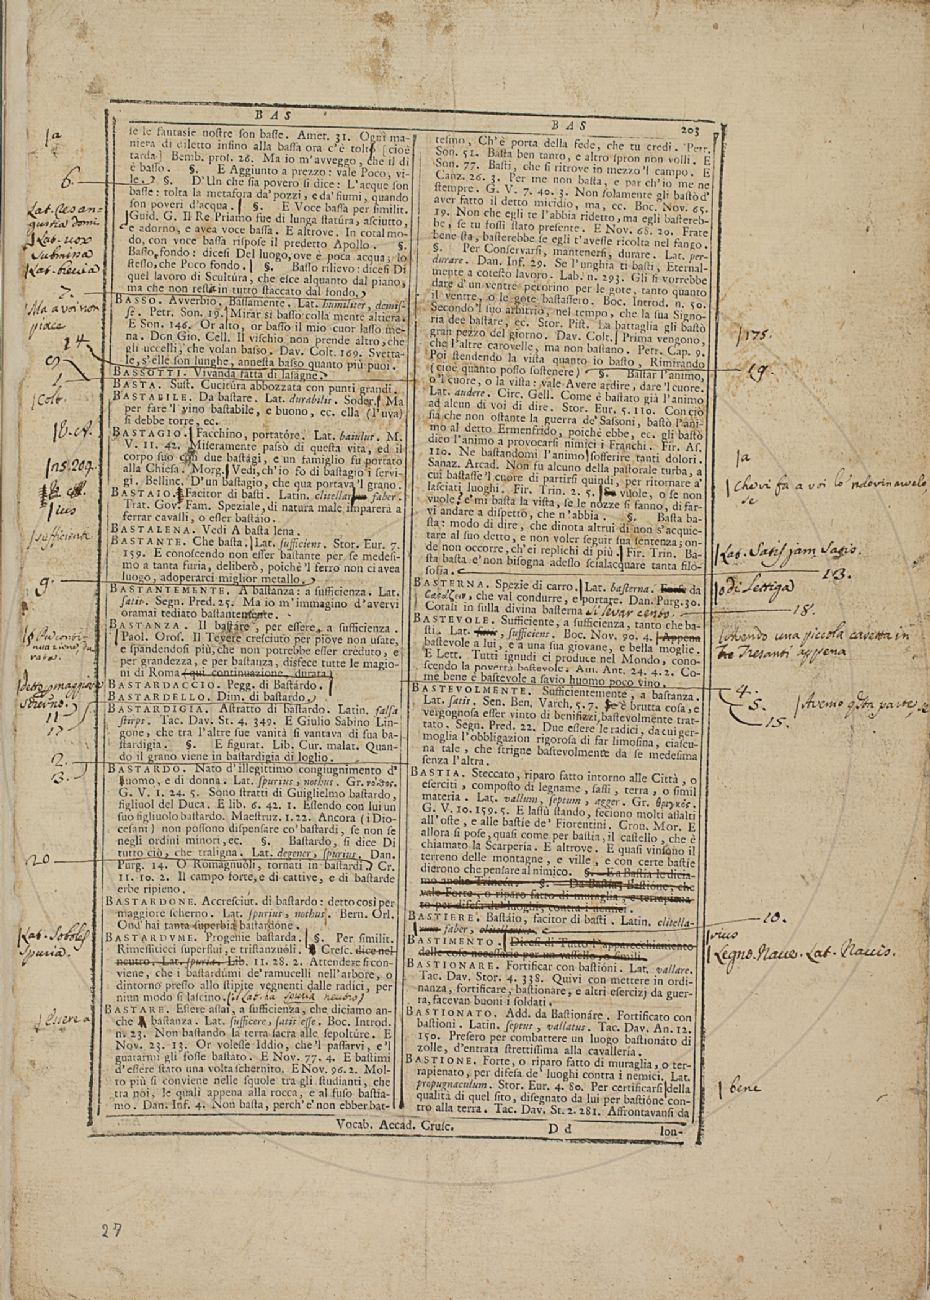 BAS
BAS 203
se le fantasie nostre son basse. Amet. 31. Ogni ma-
niera di diletto infino alla bassa ora c'è tolto [cioè
tarda] Bemb. pros. 26. Ma io m'avveggo, che il dì
è basso. §. E Aggiunto a prezzo: vale Poco, vi-
le. §. D'Un che sia povero si dice: L'acque son
basse: tolta la metafora da' pozzi, e da' fiumi, quando
son poveri d'acqua. §. E Voce bassa per similit.
Guid. G. Il Re Priamo fue di lunga statura, asciutto,
e adorno, e avea voce bassa. E altrove. In cotal mo-
do, con voce bassa rispose il predetto Apollo. §.
Basso, fondo: dicesi Del luogo, ove è poca acqua; lo
stesso, che Poco fondo. §. Basso rilievo: dicesi Di
quel lavoro di Scultura, che esce alquanto dal piano,
ma che non resta in tutto staccato dal fondo.
BASSO. Avverbio, Bassamente. Lat. humiliter, demis-
se. Petr. Son. 19. Mirar sì basso colla mente altiera.
E Son. 146. Or alto, or basso il mio cuor lasso me-
na. Don Gio. Cell. Il vischio non prende altro, che
gli uccelli, che volan basso. Dav. Colt. 169. Svetta-
le, s'elle son lunghe, annesta basso quanto più puoi.
BASSOTTI. Vivanda fatta di lasagne.
BASTA. Sust. Cucitura abbozzata con punti grandi.
BASTABILE. Da bastare. Lat. durabilis. Soder. Ma
per fare 'l vino bastabile, e buono, ec. ella (l'uva)
si debbe torre, ec.
BASTAGIO. Facchino, portatóre. Lat. baiulus. M.
V. 11. 42. Miseramente passò di questa vita, ed il
corpo suo da due bastagi, e un famiglio fu portato
alla Chiesa. Morg. Vedi, ch'io fo di bastagio i servi-
gi. Bellinc. D'un bastagio, che qua portava 'l grano.
BASTAIO. Facitor di basti. Latin. clitellarum faber.
Trat. Gov. Fam. Speziale, di natura male imparerà a
ferrar cavalli, o esser bastáio.
BASTALENA. Vedi A basta lena.
BASTANTE. Che basta. Lat. sufficiens. Stor. Eur. 7.
159. E conoscendo non esser bastante per se medesi-
mo a tanta furia, deliberò, poichè 'l ferro non ci avea
luogo, adoperarci miglior metallo.
BASTANTEMENTE. A bastanza: a sufficienza. Lat.
satis. Segn. Pred. 25. Ma io m'immagino d'avervi
oramai tediato bastantemente.
BASTANZA. Il bastare, per essere, a sufficienza.
Paol. Oros. Il Tevere cresciuto per piove non usate,
e spandendosi più, che non potrebbe esser creduto, e
per grandezza, e per bastanza, disfece tutte le magio-
ni di Roma (qui continuazione, durata)
BASTARDACCIO. Pegg. di Bastárdo.
BASTARDELLO. Dim. di Bastardo.
BASTARDIGIA. Astratto di bastardo. Latin. falsa
stirps. Tac. Dav. St. 4. 349. E Giulio Sabino Lin-
gone, che tra l'altre sue vanità si vantava di sua ba-
stardigia. §. E figurat. Lib. Cur. malat. Quan-
do il grano viene in bastardigia di loglio.
BASTARDO. Nato d'illegittimo congiugnimento d'
uomo, e di donna. Lat. spurius, nothus. Gr. νόθος.
G. V. 1. 24. 5. Sono stratti di Guiglielmo bastardo,
figliuol del Duca. E lib. 6. 42. 1. Essendo con lui un
suo figliuolo bastardo. Maestruz. 1. 22. Ancora (i Dio-
cesani) non possono dispensare co' bastardi, se non se
negli ordini minori, ec. §. Bastardo, si dice Di
tutto ciò, che traligna. Lat. degener, spurius. Dan.
Purg. 14. O Romagnuoli, tornati in bastardi. Cr.
11. 10. 2. Il campo forte, e di cattive, e di bastarde
erbe ripieno.
BASTARDONE. Accresciut. di bastardo: detto così per
maggiore scherno. Lat. spurius, nothus. Bern. Orl.
Ond'hai tanta superbia bastardone.
BASTARDUME. Progenie bastarda. §. Per similit.
Rimessiticci superflui, e tristanzuoli. Cresc. dice nel
neutro. Lat. spuria. Lib. 11. 28. 2. Attendere si con-
viene, che i bastardumi de' ramucelli nell'arbore, o
dintorno presso allo stipite vegnenti dalle radici, per
niun modo si lascino. (il Lat. ha spuria neutro)
BASTARE. Essere assai, a sufficienza, che diciamo an-
che bastanza. Lat. sufficere, satis esse. Boc. Introd.
n. 23. Non bastando la terra sacra alle sepolture. E
Nov. 23. 13. Or volesse Iddio, che 'l passarvi, e 'l
guatarmi gli fosse bastato. E Nov. 77. 4. E bastimi
d'essere stato una volta schernito. E Nov. 96. 2. Mol-
to più si conviene nelle squole tra gli studianti, che
tra noi, le quali appena alla rocca, e al fuso bastia-
mo. Dan. Inf. 4. Non basta, perch'e' non ebber bat-
tesimo, Ch'è porta della fede, che tu credi. Petr.
Son. 51. Basta ben tanto, e altro spron non volli. E
Son. 77. Basti, che si ritrove in mezzo 'l campo. E
Canz. 26. 3. Per me non basta, e par ch'io me ne
stempre. G. V. 7. 40. 3. Non solamente gli bastò d'
aver fatto il detto micidio, ma, ec. Boc. Nov. 65.
19. Non che egli te l'abbia ridetto, ma egli basterebbe,
be, se tu fossi stato presente. E Nov. 68. 20. Frate
bene sta, basterebbe se egli t'avesse ricolta nel fango.
§. Per Conservarsi, mantenersi, durare. Lat. per-
durare. Dan. Inf. 29. Se l'unghia ti basti, Eternal-
mente a cotesto lavoro. Lab. n. 293. Gli si vorrebbe
dare d'un ventre pecorino per le gote, tanto quanto
il ventre, o le gote bastassero. Boc. Introd. n. 50.
Secondo 'l suo arbitrio, nel tempo, che la sua Signo-
ria dee bastare, ec. Stor. Pist. La battaglia gli bastò
gran pezzo del giorno. Dav. Colt. Prima vengono,
che l'altre carovelle, ma non bastano. Petr. Cap. 9.
Poi stendendo la vista quanto io basto, Rimirando
(cioè quanto posso sostenere) §. Bastar l'animo,
o 'l cuore, o la vista: vale Avere ardire, dare 'l cuore.
Lat. audere. Circ. Gell. Come è bastato già l'animo
ad alcun di voi di dire. Stor. Eur. 5. 110. Con ciò
sia che non ostante la guerra de' Sassoni, bastò l'ani-
mo al detto Ermenfrido, poichè ebbe, ec. gli bastò
dico l'animo a provocarsi nimici i Franchi. Fir. As.
110. Ne bastandomi l'animo sofferire tanti dolori.
Sanaz. Arcad. Non fu alcuno della pastorale turba, a
cui bastasse 'l cuore di partirsi quindi, per ritornare a'
lasciati luoghi. Fir. Trin. 2. 5. Se vuole, o se non
vuole, e' mi basta la vista, se le nozze si fanno, di far-
vi andare a dispetto, che n'abbia. §. Basta ba-
sta: modo di dire, che dinota altrui di non s'acquie-
tare al suo detto, e non voler seguir sua sentenza; on-
de non occorre, ch'ei replichi di più. Fir. Trin. Ba-
sta basta e' non bisogna adesso scialacquare tanta filo-
sofia.
BASTERNA. Spezie di carro. Lat. basterna. da
che val condurre, e portare. Dan. Purg. 30.
Cotali in sulla divina basterna si levar cento.
BASTEVOLE. Sufficiente, a sufficienza, tanto che ba-
sti. Lat. sufficiens. Boc. Nov. 90. 4. Appena
bastevole a lui, e a una sua giovane, e bella moglie.
E Lett. Tutti ignudi ci produce nel Mondo, cono-
scendo la povertà bastevole. Am. Ant. 24. 4. 2. Co-
me bene è bastevole a savio huomo poco vino.
BASTEVOLMENTE. Sufficientemente, a bastanza.
Lat. satis. Sen. Ben. Varch. 5. 7. è brutta cosa, e
vergognosa esser vinto di benifizzi, bastevolmente trat-
tato. Segn. Pred. 22. Due essere le radici, da cui ger-
moglia l'obbligazion rigorosa di far limosina, ciascu-
na tale, che strigne bastevolmente da se medesima
senza l'altra.
BASTIA. Steccato, riparo fatto intorno alle Città, o
eserciti, composto di legname, sassi, terra, o simil
materia. Lat. vallum, septum, agger. Gr. θριγκός.
G. V. 10. 159. 5. E lassù stando, feciono molti assalti
all'oste, e alle bastie de' Fiorentini. Cron. Mor. E
allora si pose, quasi come per bastia, il castello, che è
chiamato la Scarperia. E altrove. E quasi vinsono il
terreno delle montagne, e ville, e con certe bastie
dierono che pensare al nimico. §. E a Bastìa le dicia-
mo anche Trincea. §. Da Bastìa, Bastione, che
vale Forte, o riparo fatto di muraglia, e terrapiena-
to per difesa de' luoghi, contra i nemici.
BASTIERE. Bastáio, facitor di basti. Latin. clitella-
rum faber,
BASTIMENTO. Dicesi di Tutto l'apparecchiamento
delle cose necessarie per un vassello, o simili.
BASTIONARE. Fortificar con bastióni. Lat. vallare.
Tac. Dav. Stor. 4. 338. Quivi con mettere in ordi-
nanza, fortificare, bastionare, e altri esercizj da guer-
ra, facevan buoni i soldati.
BASTIONATO. Add. da Bastionáre. Fortificato con
bastioni. Latin. septus, vallatus. Tac. Dav. An. 12.
150. Presero per combattere un luogo bastionáto di
zolle, d'entrata strettissima alla cavalleria.
BASTIONE. Forte, o riparo fatto di muraglia, o ter-
rapienato, per difesa de' luoghi contra i nemici. Lat.
propugnaculum. Stor. Eur. 4. 80. Per certificarsi della
qualità di quel sito, disegnato da lui per bastióne con-
tro alla terra. Tac. Dav. St. 2. 281. Affrontavansi da
Vocab. Accad. Crusc. D d lon-
a
6.
Lat. res an-
gusta domi
Lat. vox
submissa
Lat. brevia
7.
Ma a voi non
piace
14
9
1
Colt.
18. ct.
ns. 209.
ius
sufficiente
9.
detto p maggiore
scherno.
11
17
2.
3.
20
Lat. Soboles
spuria.
Essere a
175.
19.
a
che vi fa a voi lo 'ndovinarvelo
se
Lat. Satis jam satis.
13.
o di Lettiga
18.
havendo una piccola casetta in
Tresanti appena
4.
5.
15.
Avemo qsta parte.
10.
rius
Legno. Nave. Lat. Navis.
bene
27